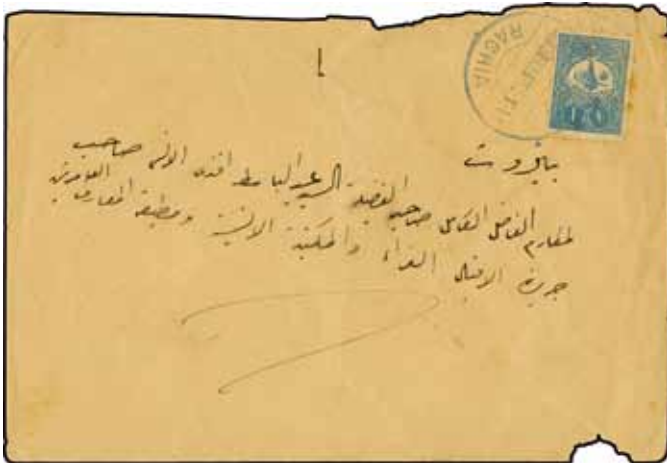 RACHIA
١
بيروت
الفاضل الكامل صاحب الفضيلة السيد عبد الباسط افندي الانسي صاحب
جريدة الاقبال الغراء والمكتبة الانسية ومطبعة